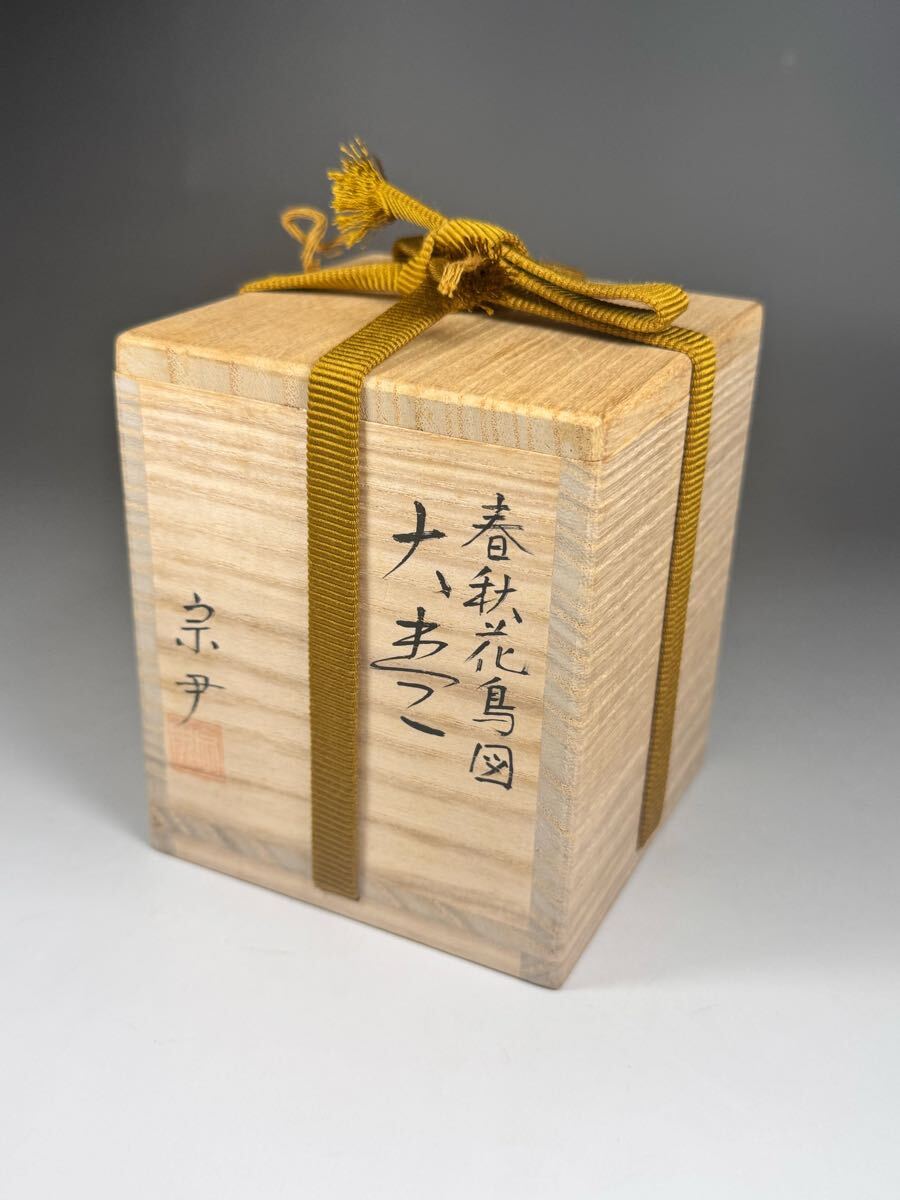 春秋花鳥図
大棗
宗尹